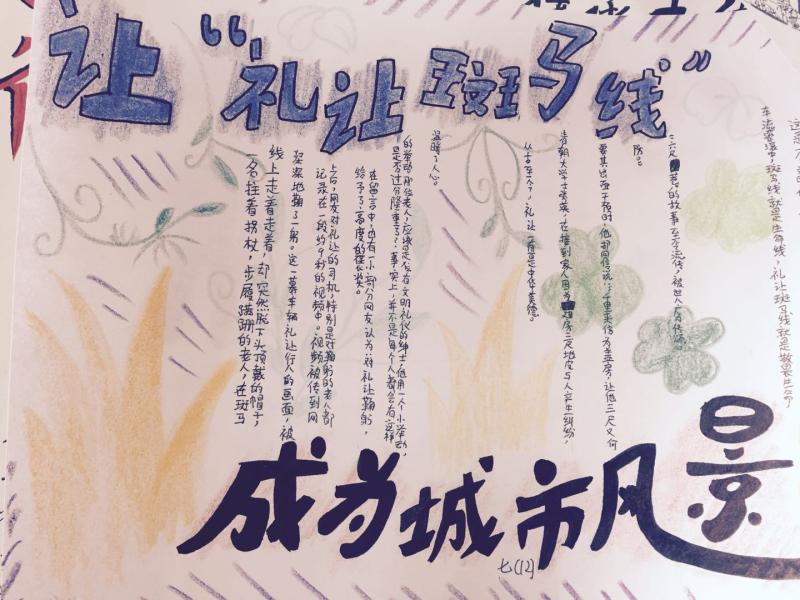 让“礼让斑马线”
一名拄着拐杖,步履蹒跚的老人,在斑马
线上走着走着,却突然脱下头顶戴的帽子,
深深地鞠了一躬。这一幕车辆礼让行人的画面,被
记录在一段约9秒的视频中。视频被传到网
上后,网友对礼让的司机,特别是对鞠躬的老人都
给予了高度的褒奖。
在留言中,也有一小部分网友认为,对礼让鞠躬,
是否过分隆重了?事实上,并不是每个人都会有这样
的举动,那位老人,应该是位有文明礼仪的绅士,他用一个小举动,
温暖了人心。
从古至今,礼让一直是中华美德。
清朝大学士张英,在接到家人因为房三尺地皮与人产生纠纷,
要其出面干预时,他却回信说:千里来信为盖房,让他三尺又何
妨。
“六尺巷”的故事至今流传,被世人广为传颂。
车流滚滚中,斑马线就是生命线,礼让斑马线就是敬畏生命
成为城市风景
七(12)